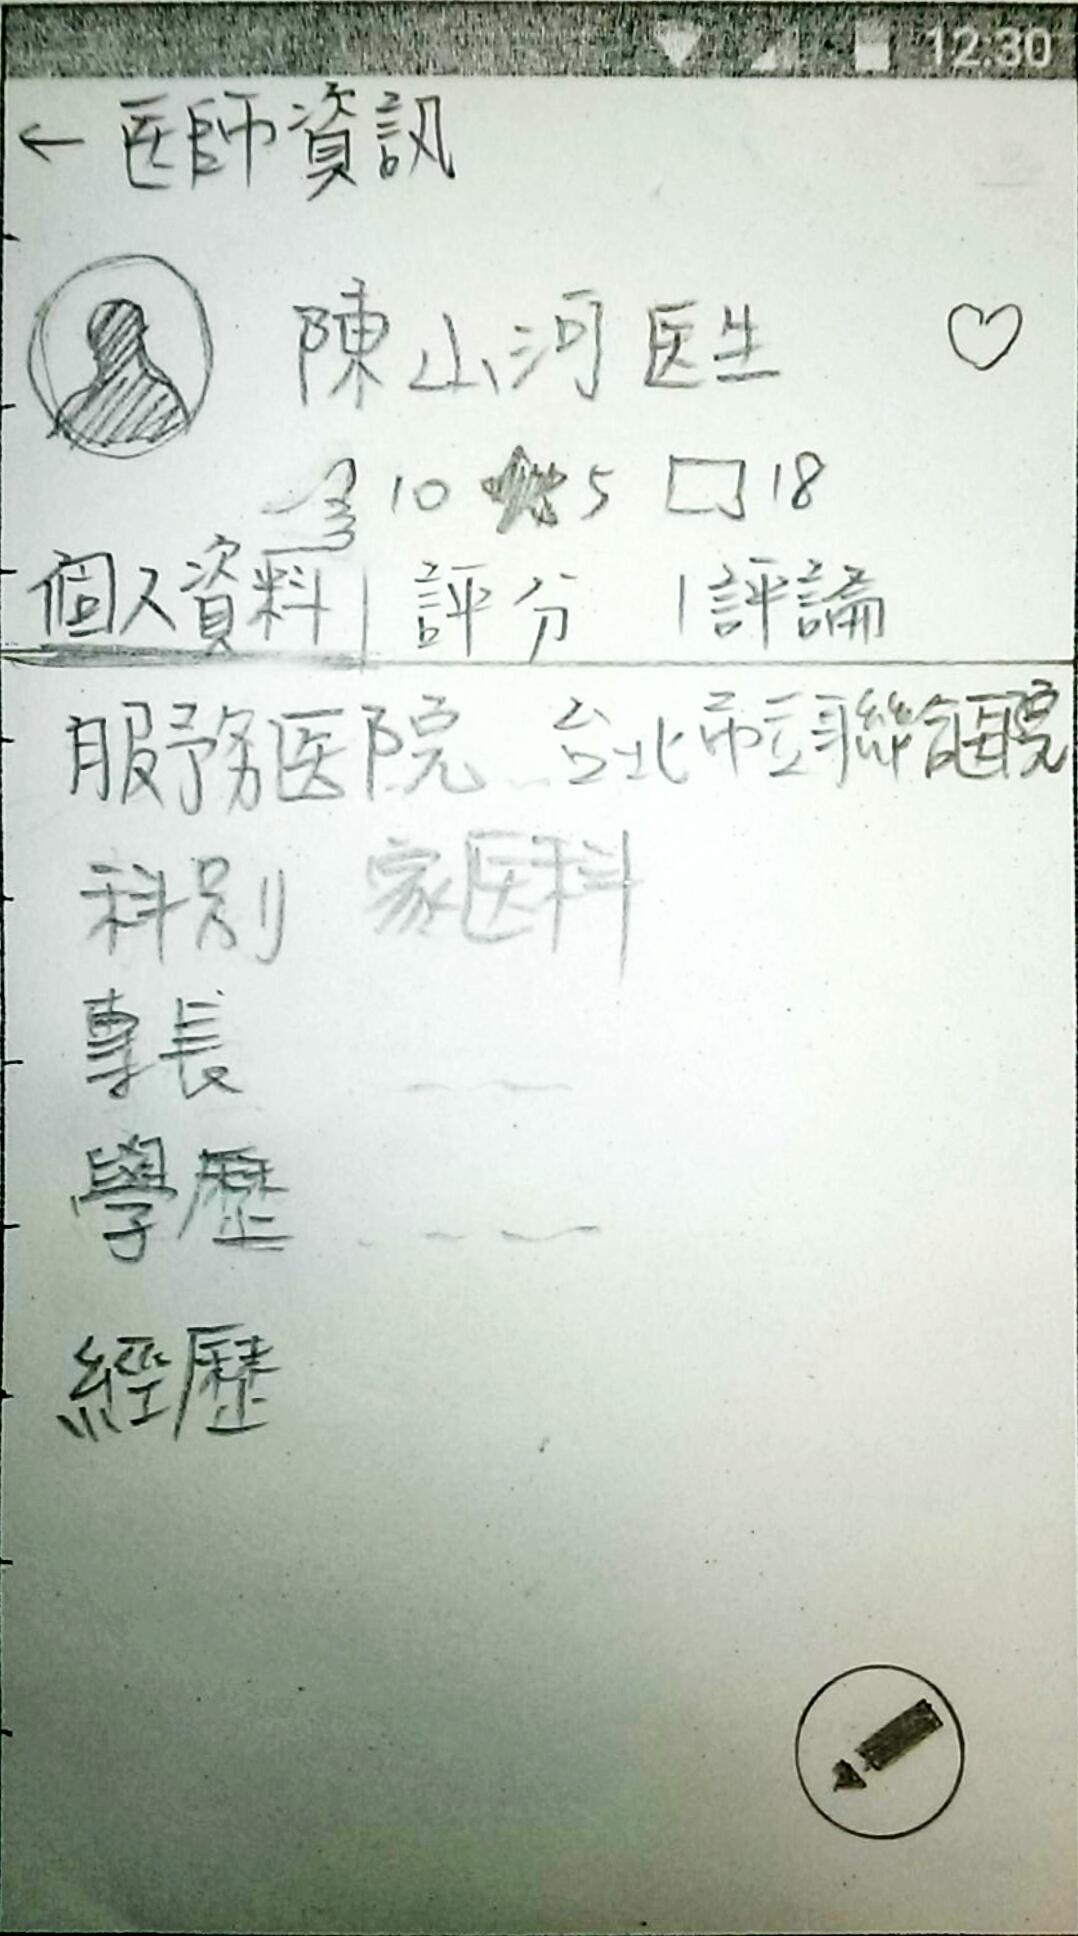 12:30
← 医師資訊
陳山河医生
10 5 18
個人資料 | 評分 | 評論
服務医院 台北市立聯合医院
科別 家医科
專長
學歷
經歷